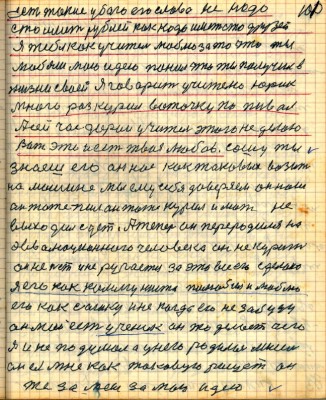 107
дет такие у бого его слова не надо
сто имет рублей как надо имет сто друзей
Я тебя как учител люблю за то это ти
любыш мою идею понял это ти получил в
жизни своей Я говарит учителю юрик
много раз курил водочку попивал
А сейчас федрин учител этого не делаю
Вот эти и ест твоя любов. Сашу ти
знаеш его он нас как таковых возит
на машине Мы ему себя доверяем он нами
он тоже пил он тоже курил и мат не
выходил с рта. А тепер он переродился на
эволюционного человека он не курит
он не пёт и не ругается за это все сделано
Я его как коммуниста полюбил и люблю
его как сашку и не когда его не забуду
он мой ест ученик он то делает чего
Я и не подумал а у него родилас мысл
он ей мне как таковую рисует он
же за меня за мою идею